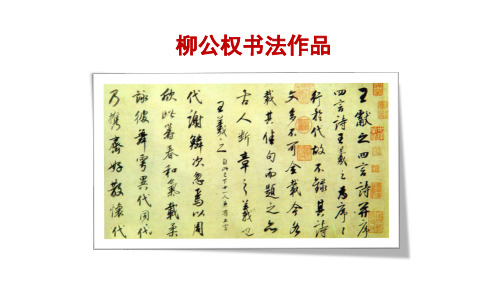 柳公权书法作品
王獻之四言詩并序
四言詩王羲之為序
行於代故不錄其詩
文多不可全載今各
裁其佳句而題之亦
古人斷章之義也
王羲之
代謝鱗次忽焉以周
欣此暮春和氣載柔
詠彼舞雩異代同
乃攜齊好散懷